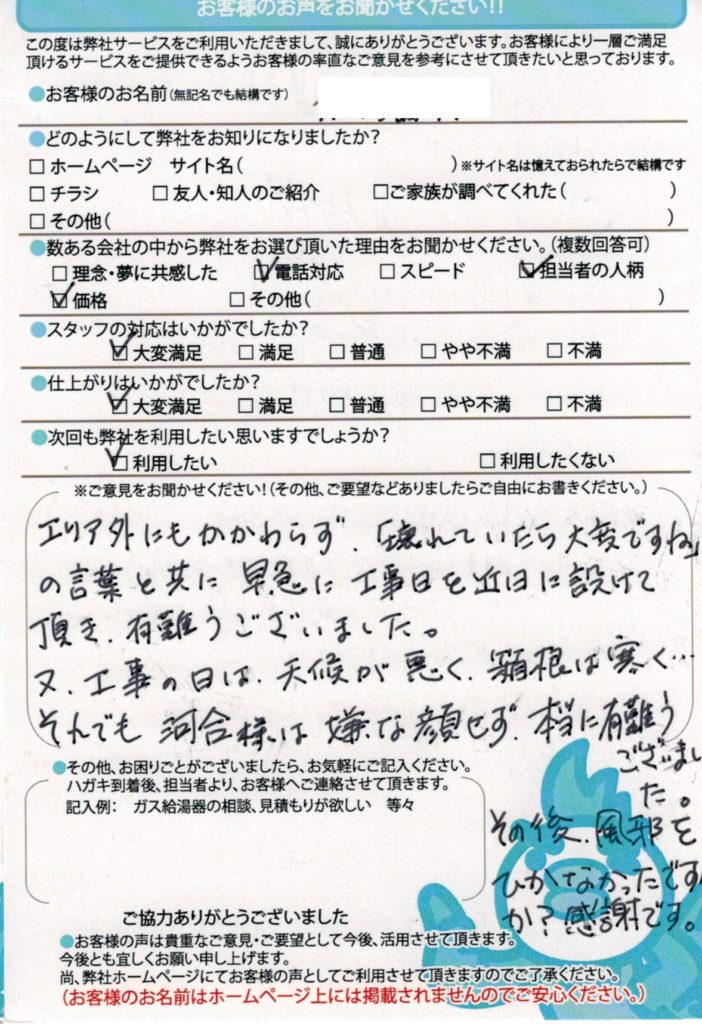 お客様のお声をお聞かせください!!
この度は弊社サービスをご利用いただきまして、誠にありがとうございます。お客様により一層ご満足
頂けるサービスをご提供できるようお客様の率直なご意見を参考にさせて頂きたいと思っております。
●お客様のお名前(無記名でも結構です)
●どのようにして弊社をお知りになりましたか?
□ ホームページ サイト名( )※サイト名は憶えておられたらで結構です
□ チラシ □ 友人・知人のご紹介 □ご家族が調べてくれた( )
□ その他( )
●数ある会社の中から弊社をお選び頂いた理由をお聞かせください。(複数回答可)
□ 理念・夢に共感した ☑ 電話対応 □ スピード ☑ 担当者の人柄
☑ 価格 □ その他( )
●スタッフの対応はいかがでしたか?
☑ 大変満足 □ 満足 □ 普通 □ やや不満 □ 不満
●仕上がりはいかがでしたか?
☑ 大変満足 □ 満足 □ 普通 □ やや不満 □ 不満
●次回も弊社を利用したい思いますでしょうか?
☑ 利用したい □ 利用したくない
※ご意見をお聞かせください!(その他、ご要望などありましたらご自由にお書きください。)
エリア外にもかかわらず、「壊れていたら大変ですね」
の言葉と共に早急に工事日を近日に設けて
頂き、有難うございました。
又、工事の日は、天候が悪く、箱根は寒く…
それでも河合様は嫌な顔せず、本当に有難う
ございまし
た。
その後、風邪を
ひかなかったです
か?感謝です。
●その他、お困りごとがございましたら、お気軽にご記入ください。
ハガキ到着後、担当者より、お客様へご連絡させて頂きます。
記入例: ガス給湯器の相談、見積もりが欲しい 等々
ご協力ありがとうございました
●お客様の声は貴重なご意見・ご要望として今後、活用させて頂きます。
今後とも宜しくお願い申し上げます。
尚、弊社ホームページにてお客様の声としてご利用させて頂きますのでご了承ください。
(お客様のお名前はホームページ上には掲載されませんのでご安心ください。)